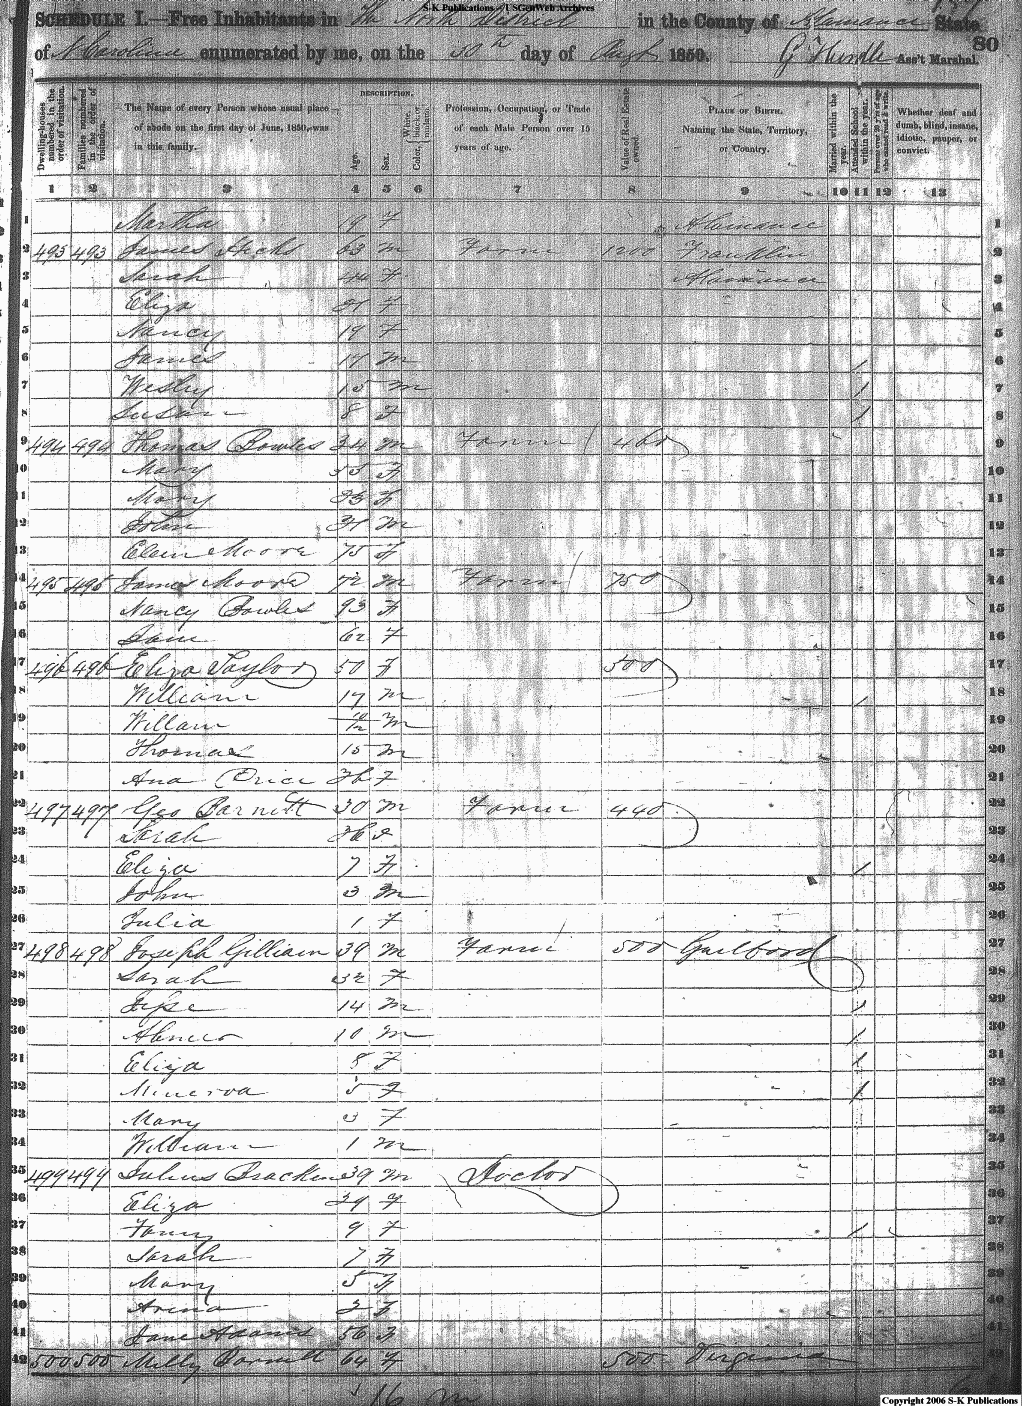 S-K Publications - USGenWeb Archives
SCHEDULE I.—Free Inhabitants in The North District in the County of Alamance State
of N Carolina enumerated by me, on the 30th day of Augt 1850. Ass't Marshal.
80
Dwelling-houses numbered in the order of visitation.
Families numbered in the order of visitation.
The Name of every Person whose usual place of abode on the first day of June, 1850, was in this family.
DESCRIPTION.
Age.
Sex.
Color, White, black, or mulatto.
Profession, Occupation, or Trade of each Male Person over 15 years of age.
Value of Real Estate owned.
PLACE OF BIRTH, Naming the State, Territory, or Country.
Married within the year.
Attended School within the year.
Persons over 20 y'rs of age who cannot read & write.
Whether deaf and dumb, blind, insane, idiotic, pauper, or convict.
1 2 3 4 5 6 7 8 9 10 11 12 13
1 Martha 19 F Alamance 1
2 493 493 James Hicks 63 M Farm 1200 Franklin 2
3 Sarah 44 F Alamance 3
4 Eliza 21 F 4
5 Nancy 19 F 5
6 James 17 M / 6
7 Wesley 15 M / 7
8 Susan 8 F / 8
9 494 494 Thomas Bowles 34 M Farm 460 9
10 Mary 55 F 10
11 Mary 25 F 11
12 John 21 M 12
13 Moore 75 F 13
14 495 495 James Moore 72 M Farm 750 14
15 Nancy Bowles 93 F 15
16 Jane 62 F 16
17 496 496 Eliza Taylor 50 F 500 17
18 William 17 M / 18
19 Willam 10/12 M 19
20 Thomas 15 M 20
21 Ana 26 F 21
22 497 497 Geo Barnett 30 M Farm 440 22
23 Sarah 26 F 23
24 Eliza 7 F / 24
25 John 3 M 25
26 Julia 1 F 26
27 498 498 Joseph Gilliam 39 M Farm 500 Guilford 27
28 Sarah 32 F 28
29 Jesse 14 M / 29
30 Abner 10 M / 30
31 Eliza 8 F / 31
32 Minerva 5 F / 32
33 Mary 3 F 33
34 William 1 M 34
35 499 499 Julius Bracken 39 M Doctor 35
36 Eliza 29 F 36
37 Fanny 9 F / 37
38 Sarah 7 F 38
39 Mary 5 F 39
40 Arena 2 F 40
41 Jane Adams 56 F 41
42 500 500 Milly Barnett 64 F 500 Virginia 42
16 m
Copyright 2006 S-K Publications